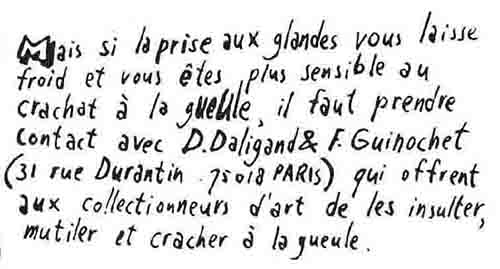 Mais si la prise aux glandes vous laisse
froid et vous êtes plus sensible au
crachat à la gueule, il faut prendre
contact avec D.Daligand & F. Guinochet
(31 rue Durantin . 75018 PARIS) qui offrent
aux collectionneurs d'art de les insulter,
mutiler et cracher à la gueule.